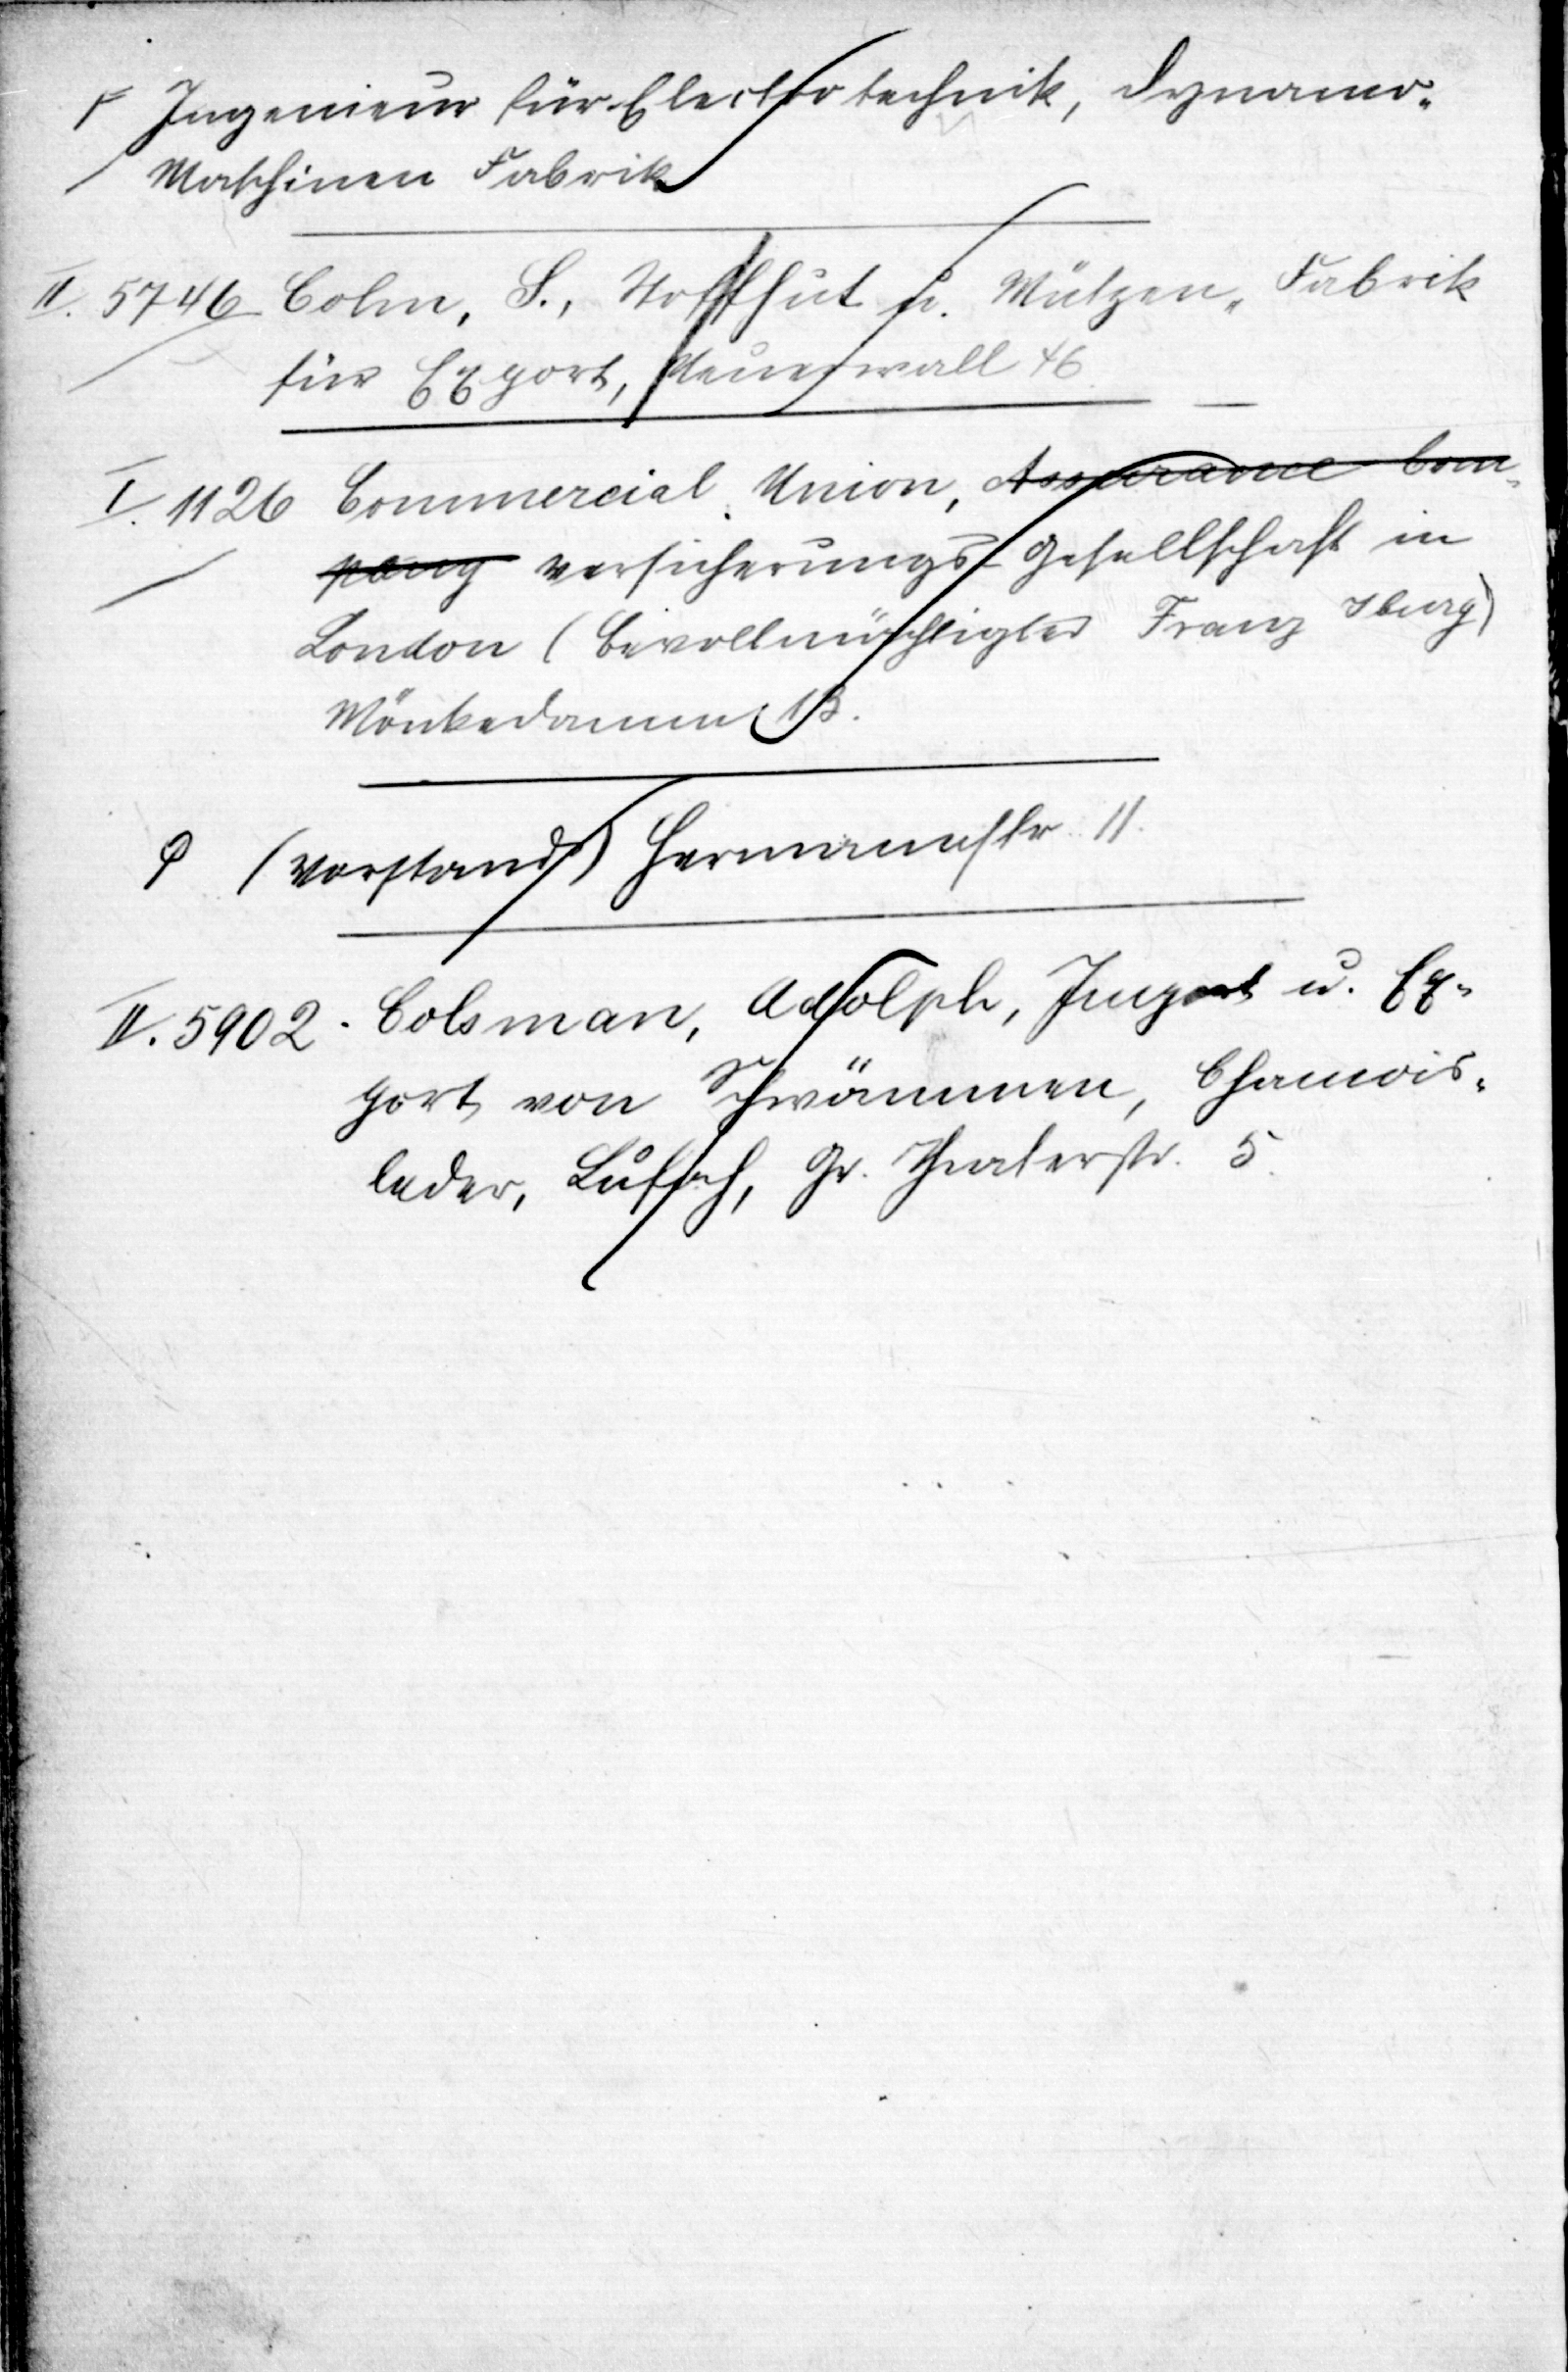 Ingenieur für Electrotechnik, Dynamo-
Maschinen Fabrik
II. 5746 Colm, S., Stoffhut u. Mützen-Fabrik
für Export, Neuerwall 46.
I. 1126 Commercial Union, Assurance Com-
pany Versicherungs-Gesellschaft in
London (Bevollmächtigter Franz Iburg)
Mönkedamm 13.
(Vorstand) Hermannstr. 11.
II. 5902. Colsman, Adolph, Import u. Ex-
port von Schwämmen, Chamois-
leder, Luffah, Gr. Theaterstr. 5.